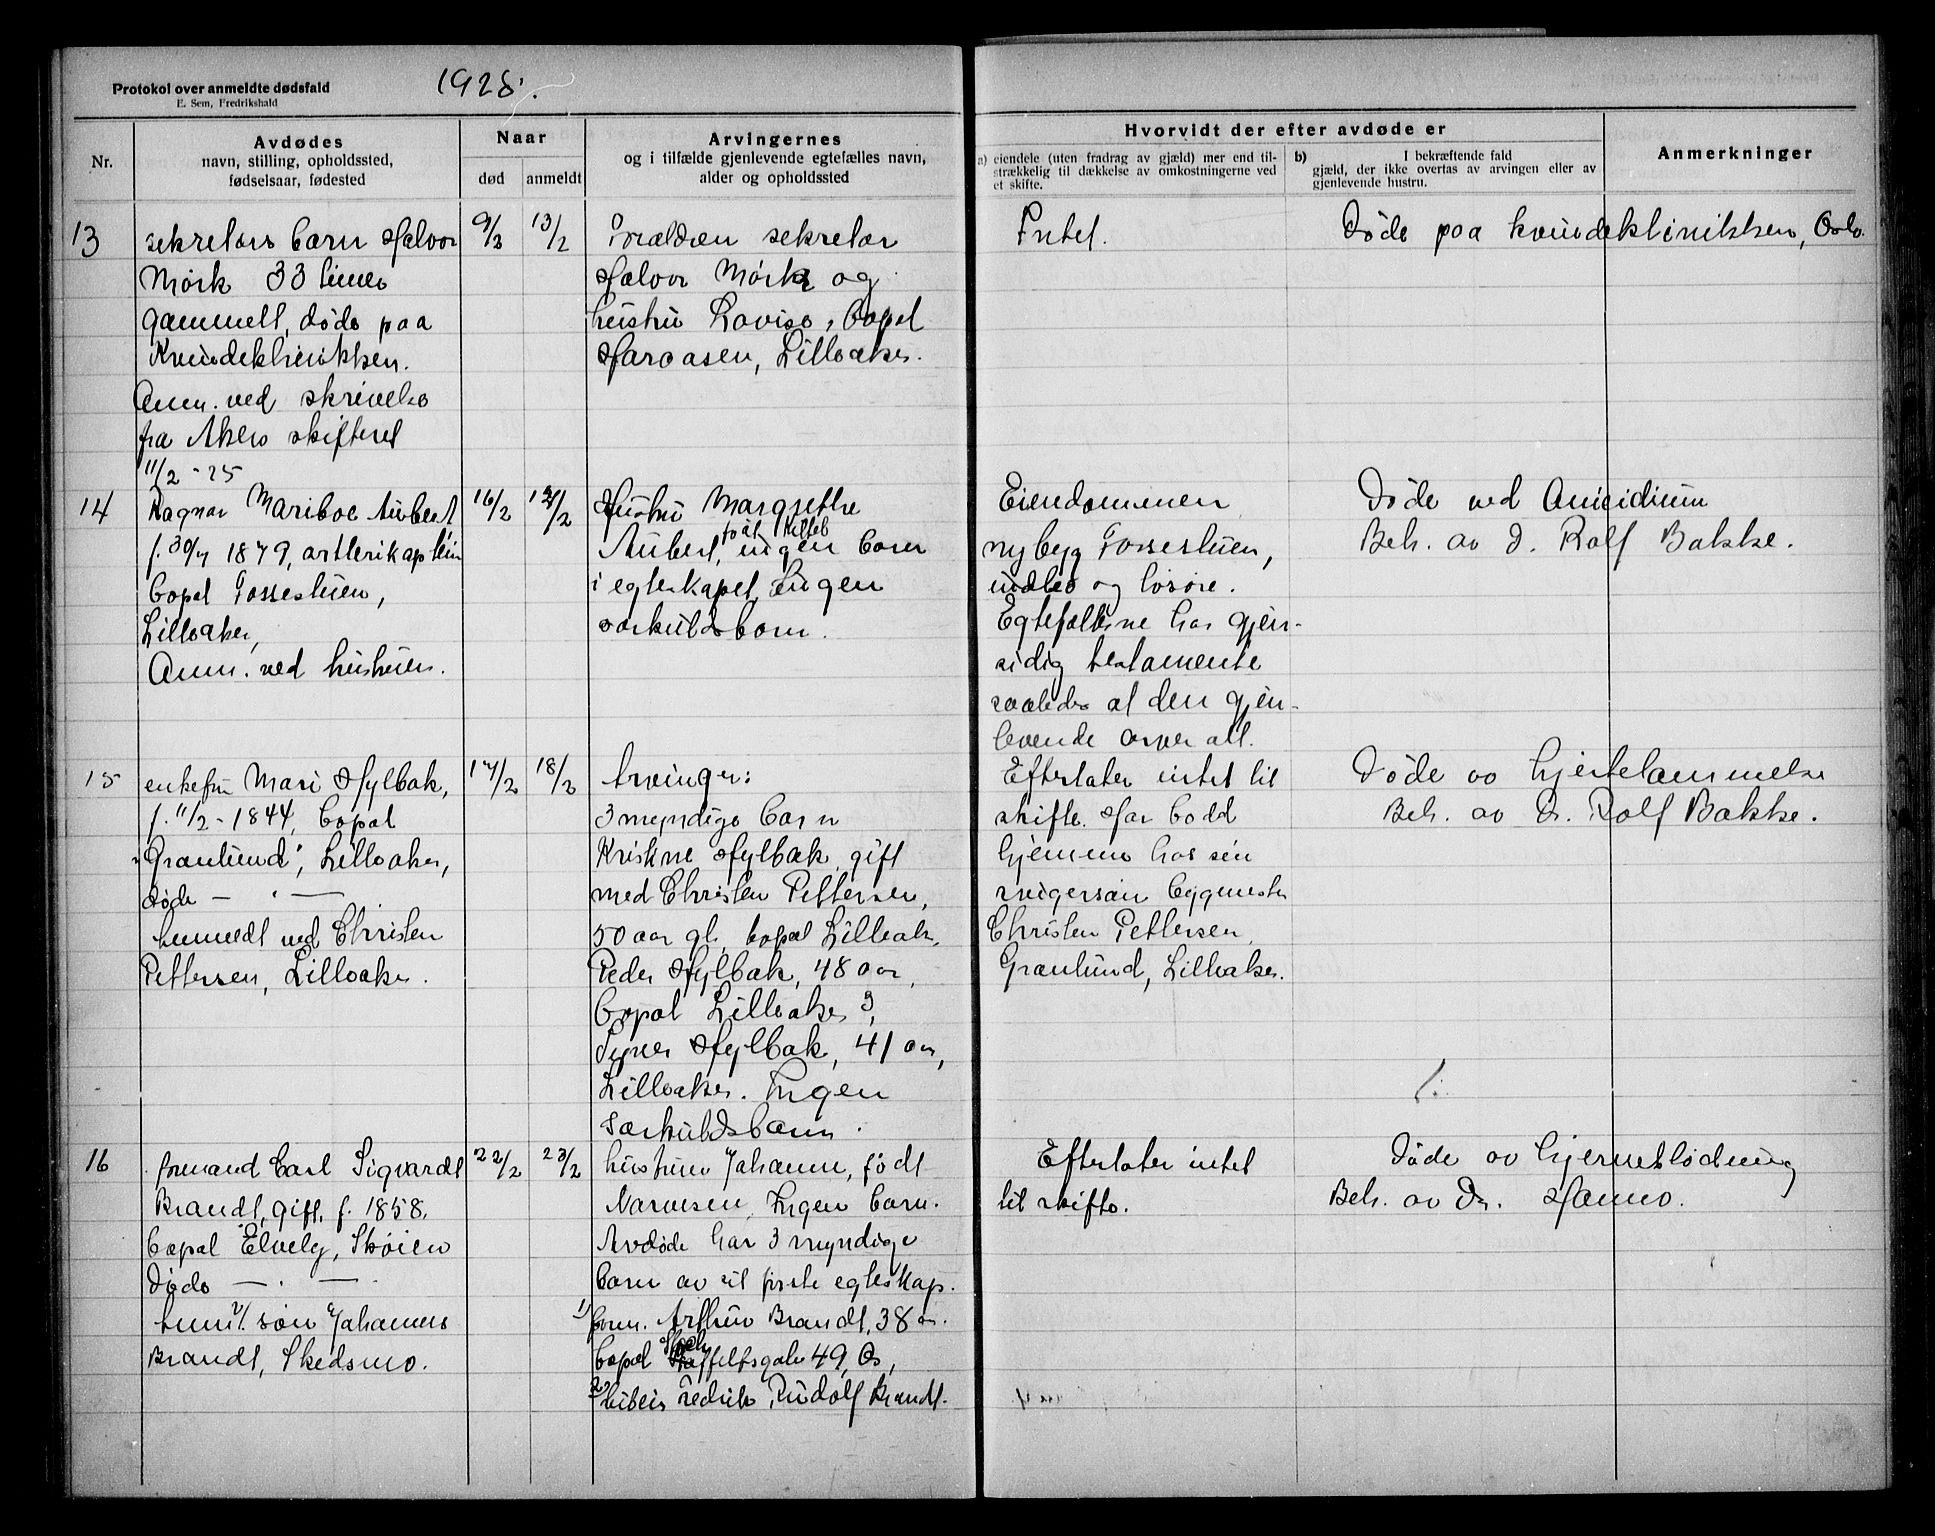 Protokol over anmeldte dødsfald
E. Sem, Fredrikshald
1925.
Nr.
Avdødes
navn, stilling, opholdssted,
fødselsaar, fødested
Naar
død
anmeldt
Arvingernes
og i tilfælde gjenlevende egtefælles navn,
alder og opholdssted
Hvorvidt der efter avdøde er
a) eiendele (uten fradrag av gjæld) mer end til-
strækkelig til dækkelse av omkostningerne ved
et skifte.
b) I bekræftende fald
gjæld, der ikke overtas av arvingen eller av
gjenlevende hustru.
Anmerkninger
13
sekretærs barn Halvor
Mørk 33 timer
gammelt, døde paa
Kvindeklinikken.
Anm. ved skrivelse
fra Akers skifteret
11/2 - 25
9/2
13/2
Forældren sekretær
Halvor Mørk og
hustru Lovise, bopæl
Harvasen, Lilleaker.
Intet.
Døde paa kvindeklinikken, Oslo.
14
Ragnar Mariboe Aubert
f. 30/7 1879, artlerikaptein
bopæl Fossestuen,
Lilleaker,
Anm. ved hustruen.
16/2
17/2
Hustru Margrethe
Aubert, født ingen barn
i egteskapet, Ingen
særkuldsbarn.
Eiendommen
nybyg Fossestuen,
indbo og løsøre.
Egtefællerne har gjen-
sidig testamente
saaledes at den gjen-
levende arver alt.
Døde ved
Beh. av D. Rolf Bakke.
15
enkefru Mari Hylbak,
f. 11/2 - 1844, bopæl
"Granlund", Lilleaker,
døde — " —
Anmeldt ved Christen
Pettersen, Lilleaker.
17/2
18/2
Arvinger:
3 myndige barn
Kristine Hylbak, gift
med Christen Pettersen,
50 aar gl. bopæl Lilleak.
Peder Hylbak, 48 aar,
bopæl Lilleaker 3,
Hylbak, 41 aar,
Lilleaker. Ingen
Særkuldsbarn.
Efterlater intet til
skifte. Har bodd
hjemme hos sin
svigersøn byggmester
Christen Pettersen,
Granlund, Lilleaker.
Døde av hjertelammelse
Beh. av Dr. Rolf Bakke.
16
formand Carl Sigvardt
Brandt, gift, f. 1858.
bopæl Elvely, Skøien
døde — " —
Anm. v/ søn Johannes
Brandt, Skedsmo.
22/2
23/2
hustruen Johanne, født
Narvesen, Ingen barn.
Avdøde har 3 myndige
barn av sit første egteskap.
1) Arthur Brandt, 38 a.
bopæl 49, Os,
2) Fredrik Rudolf Brandt.
Efterlater intet
til skifte.
Døde av hjerneblødning
Beh. av Dr. Hanno.